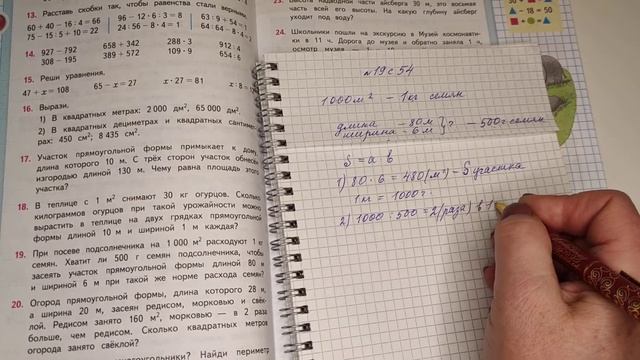 13. Расставь скобки так, чтобы равенства стали верными.
60 + 40 − 16 : 4 = 66
75 − 15 : 5 + 10 = 22
96 − 12 · 6 : 3 = 8
24 : 56 − 8 · 4 = 1
63 : 9 + 54
64 : 64 − 8 · 4
14. 927 − 792
308 − 195
658 + 342
389 + 572
288 · 3
109 · 9
912 : 4
654 : 6
15. Реши уравнения.
47 + x = 108
65 − x = 27
x · 27 = 81
x : 8 =
16. Вырази.
1) В квадратных метрах: 2 000 дм², 65 000 дм²
2) В квадратных дециметрах и квадратных сантимет-
рах: 450 см²; 8 435 см².
17. Участок прямоугольной формы примыкает к дому,
длина которого 10 м. С трёх сторон участок обнесён
изгородью длиной 130 м. Чему равна площадь этого
участка?
18. В теплице с 1 м² снимают 30 кг огурцов. Сколько
килограммов огурцов при такой урожайности можно
вырастить в теплице на двух грядках прямоугольной
формы длиной 10 м и шириной 1 м каждая?
19. При посеве подсолнечника на 1 000 м² расходуют 1 кг
семян. Хватит ли 500 г семян подсолнечника, чтобы
засеять участок прямоугольной формы длиной 80 м
и шириной 6 м при такой же норме расхода семян?
20. Огород прямоугольной формы, длина которого 28 м,
а ширина 20 м, засеян редисом, морковью и свёк-
лой. Редисом занято 160 м², морковью — в 2 раза
больше, чем редисом. Сколько квадратных метров
огорода занято свёклой?
Найди периметр
23. Высота надводной части айсберга 30 м, это восьмая
часть всей его высоты. На какую глубину айсберг
уходит под воду?
24. Школьники пошли на экскурсию в Музей космонавти-
ки в 11 ч. Дорога до музея и обратно заняла 1 ч,
осмотр музея
− 18 = 50
= 50
№19 с 54
1000 м² – 1 кг семян
длина – 80 м
ширина – 6 м } ? – 500 г семян
S = a b
1) 80 · 6 = 480 (м²) – S участка
1 кг = 1000 г.
2) 1000 : 500 = 2 (раза) в 1